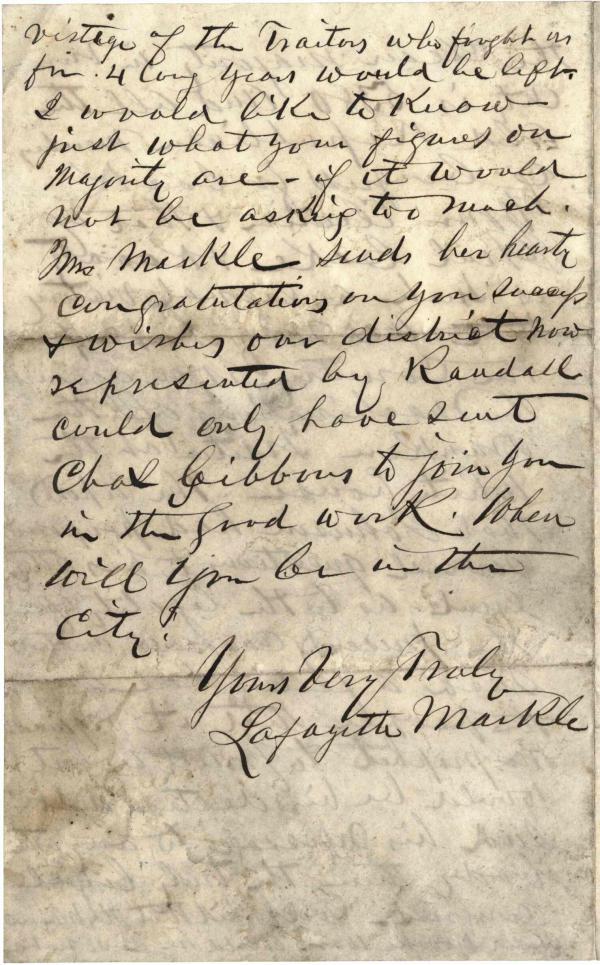 vistige of the Traitors who fought us
for 4 long years would be left.
I would like to Know
just what your figures on
Majority are - if it would
not be asking too much.
Mrs Markle sends her hearty
congratulations on your success
& wishes our district now
represented by Randall
could only have sent
Chas Gibbons to join you
in the good work. When
will you be in the
City?
Yours Very Truly
Lafayette Markle